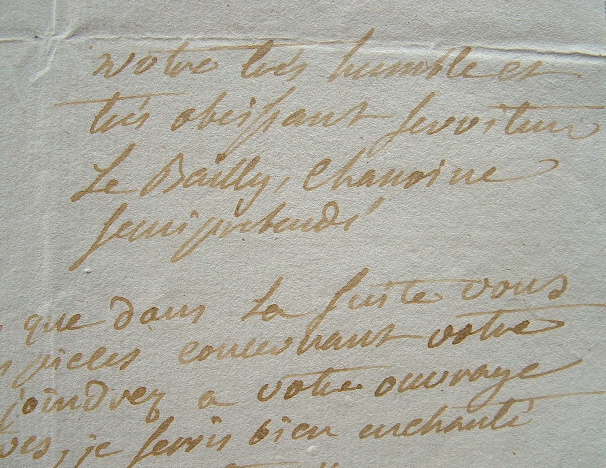 votre très humble et
très obeissant serviteur
Le Bailly, Chanoine
semiprebendé
que dans la suite vous
pieces concernant votre
joindrez a votre ouvrage
je serois bien enchanté